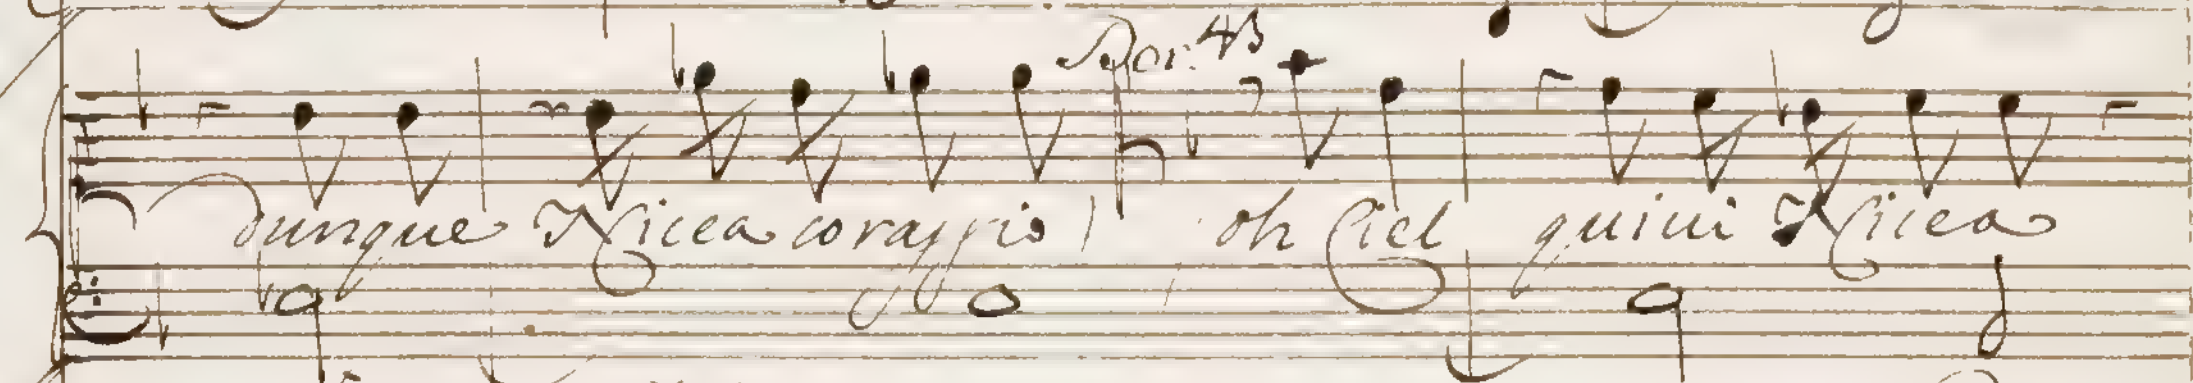 Dor.
dunque Nicea coraggio oh Ciel quiui Nicea